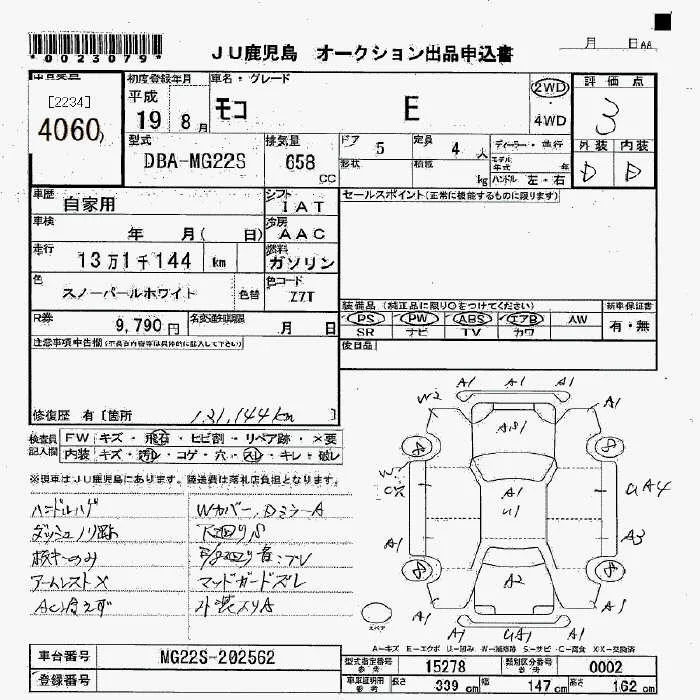 *0023079*
JU鹿児島 オークション出品申込書
月 日
[2234]
4060
初度登録年月
平成
19 8月
車名・グレード
モコ E
2WD
4WD
評価点
3
外装 内装
D D
型式
DBA-MG22S
排気量
658 cc
ドア 5
定員 4人
形状
積載 kg
ディーラー・並行
モデル年式 年
ハンドル 左・右
車歴
自家用
シフト
IAT
セールスポイント(正常に機能するものに限ります)
車検
年 月( 日)
冷房
AAC
走行
13万1千144 km
燃料
ガソリン
色
スノーパールホワイト 色替
色コード
Z7T
装備品(純正品に限り○をつけてください)
新車保証書
PS PW ABS エアB AW
SR ナビ TV カワ
有・無
R券
9,790円
名変通知期限
月 日
後日品
注意事項申告欄
修復歴 有[箇所 131,144km ]
検査員記入欄
FW キズ・飛石・ヒビ割・リペア跡・×要
内装 キズ・汚れ・コゲ・穴・スレ・キレ・破レ
※現車はJU鹿児島にあります。陸送費は落札店負担となります。
ハンドルハゲ
Wカバー、DミラーA
ダッシュノリ跡
下廻りS
アームレスト×
マッドガードズレ
外装入りA
A1 A1 A1
W2 A1
A1
8 8
W
A1
U1
UA4
A1 A3
8 8
A2
A1 A1
A1 UA1 A1
スペア
A-キズ E-エクボ U-凹み W-補修跡 S-サビ C-腐食 X,XX-交換済
車台番号
MG22S-202562
登録番号
型式指定番号 参考
15278
類別区分番号 参考
0002
車庫証明用 参考
長さ 339 cm
幅 147 cm
高さ 162 cm